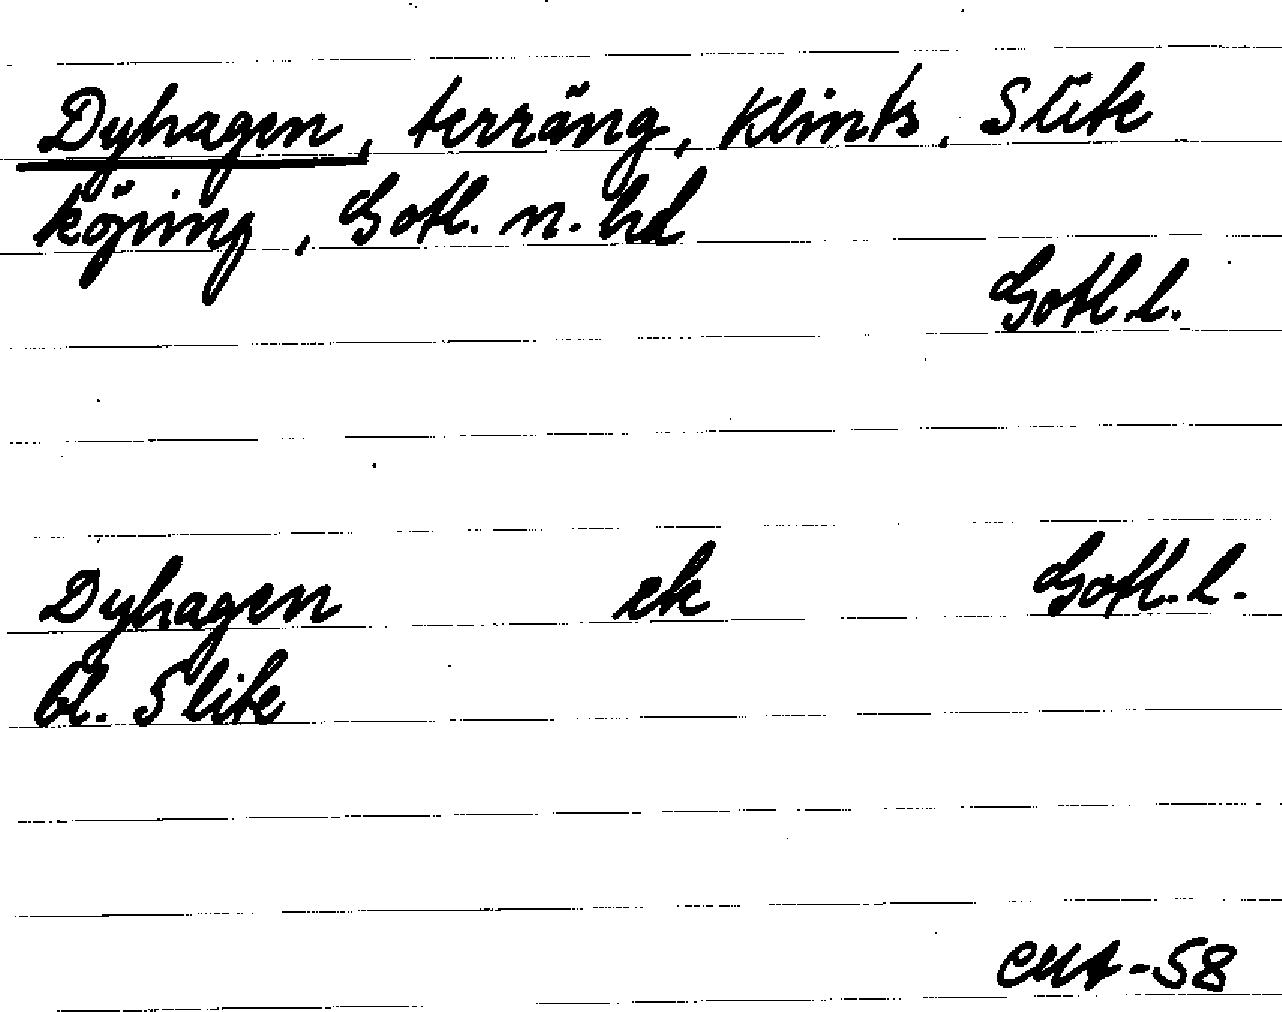 Dyhagen, terräng, Klints, Slite
köping, Gotl. n. hd
Gotl.l.
Dyhagen ek Gotl.l.
bl. Slite
CMA-58